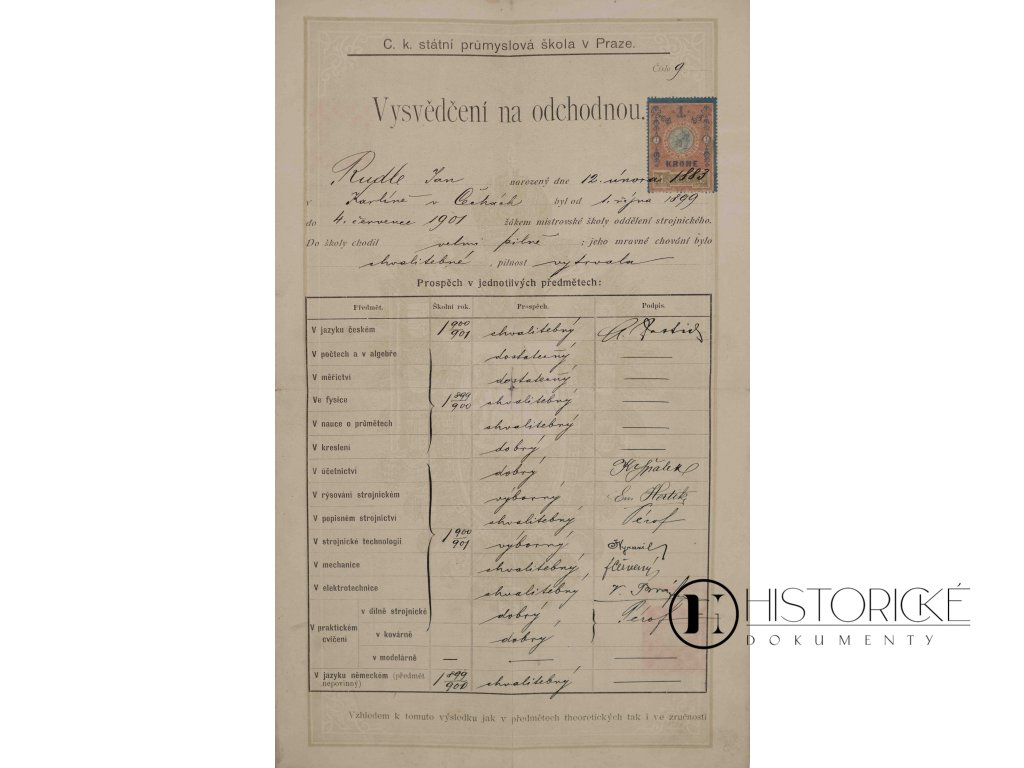 C. k. státní průmyslová škola v Praze.
Číslo 9
Vysvědčení na odchodnou.
1
KRONE
Rudle Jan narozený dne 12. února 1883
v Karlíně v Čechách byl od 1. října 1899
do 4. července 1901 žákem mistrovské školy oddělení strojnického.
Do školy chodil velmi pilně ; jeho mravné chování bylo
chvalitebné, pilnost vytrvalá
Prospěch v jednotlivých předmětech:
Předmět. Školní rok. Prospěch. Podpis.
V jazyku českém 1900/901 chvalitebný
V počtech a v algebře dostatečný
V měřictví dostatečný
Ve fysice 1899/900 chvalitebný
V nauce o průmětech chvalitebný
V kreslení dobrý
V účetnictví dobrý
V rýsování strojnickém výborný
V popisném strojnictví chvalitebný
V strojnické technologii 1900/901 výborný
V mechanice chvalitebný
V elektrotechnice chvalitebný
V praktickém cvičení
v dílně strojnické dobrý
v kovárně dobrý
v modelárně —
V jazyku německém (předmět nepovinný) 1899/900 chvalitebný
Vzhledem k tomuto výsledku jak v předmětech theoretických tak i ve zručnosti
HISTORICKÉ
DOKUMENTY